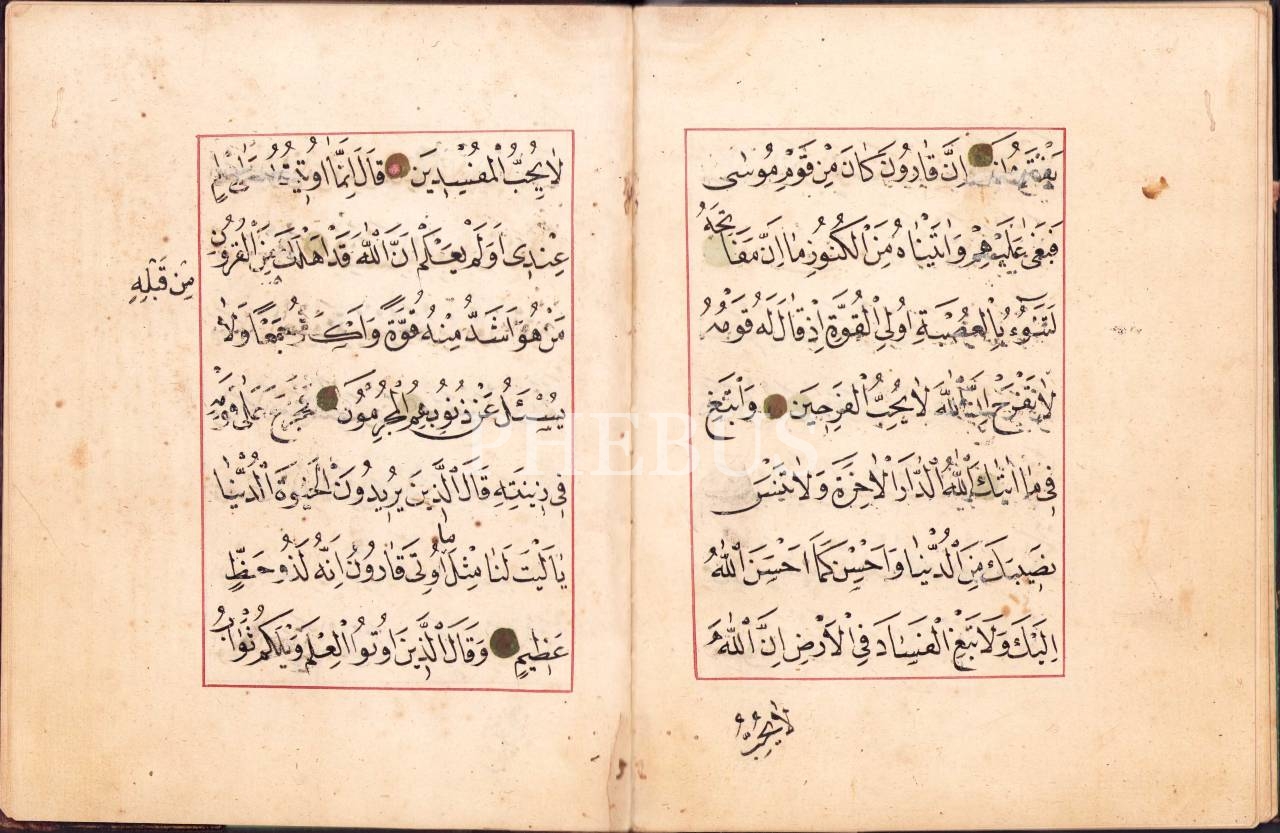 يَفْتَرُونَ اِنَّ قَارُونَ كَانَ مِنْ قَوْمِ مُوسٰى
فَبَغٰى عَلَيْهِمْ وَاٰتَيْنَاهُ مِنَ الْكُنُوزِ مَا اِنَّ مَفَاتِحَهُ
لَتَنُوءُ بِالْعُصْبَةِ اُولِى الْقُوَّةِ اِذْ قَالَ لَهُ قَوْمُهُ
لَا تَفْرَحْ اِنَّ اللّٰهَ لَا يُحِبُّ الْفَرِحِينَ وَابْتَغِ
فِى مَا اٰتٰيكَ اللّٰهُ الدَّارَ الْاٰخِرَةَ وَلَا تَنْسَ
نَصِيبَكَ مِنَ الدُّنْيَا وَاَحْسِنْ كَمَا اَحْسَنَ اللّٰهُ
اِلَيْكَ وَلَا تَبْغِ الْفَسَادَ فِى الْاَرْضِ اِنَّ اللّٰهَ
لَا يُحِبُّ
لَا يُحِبُّ الْمُفْسِدِينَ قَالَ اِنَّمَا اُوتِيتُهُ عَلٰى عِلْمٍ
عِنْدِى اَوَلَمْ يَعْلَمْ اَنَّ اللّٰهَ قَدْ اَهْلَكَ مِنَ الْقُرُونِ
مِنْ قَبْلِهِ
مَنْ هُوَ اَشَدُّ مِنْهُ قُوَّةً وَاَكْثَرُ جَمْعًا وَلَا
يُسْئَلُ عَنْ ذُنُوبِهِمُ الْمُجْرِمُونَ فَخَرَجَ عَلٰى قَوْمِهِ
فِى زِينَتِهِ قَالَ الَّذِينَ يُرِيدُونَ الْحَيٰوةَ الدُّنْيَا
يَا لَيْتَ لَنَا مِثْلَ مَا اُوتِىَ قَارُونُ اِنَّهُ لَذُو حَظٍّ
عَظِيمٍ وَقَالَ الَّذِينَ اُوتُوا الْعِلْمَ وَيْلَكُمْ ثَوَابُ
PHEBUS